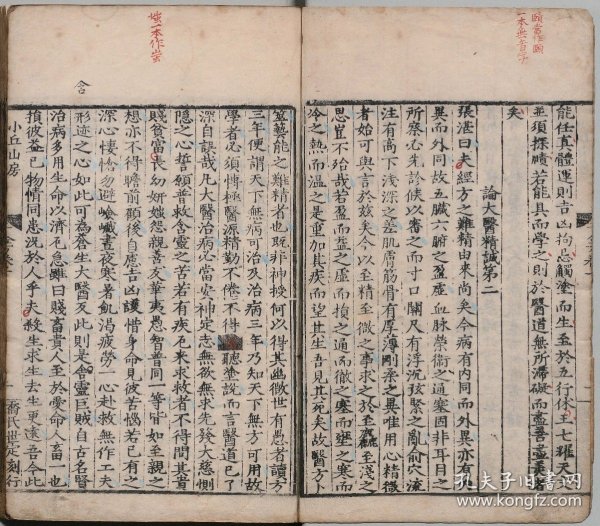 一本無
能任真體運則吉凶拘忌觸塗而生至於五行休王七耀天文
並須探賾若能具而學之則於醫道無所滯礙而盡善盡美者
矣
論大醫精誠第二
張湛曰夫經方之難精由來尚矣今病有內同而外異亦有內
異而外同故五臟六腑之盈虛血脉榮衛之通塞固非耳目之
所察必先診候以審之而寸口關尺有浮沉弦緊之亂俞穴流
注有高下淺深之差肌膚筋骨有厚薄剛柔之異唯用心精微
者始可與言於茲矣今以至精至微之事求之於至麁至淺之
思豈不殆哉若盈而益之虛而損之通而徹之塞而壅之寒而
冷之熱而溫之是重加其疾而望其生吾見其死矣故醫方卜
媸一本作蚩
含
筮藝能之難精者也既非神授何以得其幽微世有愚者讀方
三年便謂天下無病可治及治病三年乃知天下無方可用故
學者必須博極醫源精勤不倦不得聽塗說而言醫道已了
深自誤哉凡大醫治病必當安神定志無欲無求先發大慈惻
隱之心誓願普救含靈之苦若有疾厄來求救者不得問其貴
賤貧富長幼妍媸怨親善友華夷愚智普同一等皆如至親之
想亦不得瞻前顧後自慮吉凶護惜身命見彼苦惱若己有之
深心悽愴勿避嶮巇晝夜寒暑飢渴疲勞一心赴救無作工夫
形迹之心如此可為蒼生大醫反此則是含靈巨賊自古名賢
治病多用生命以濟危急雖曰賤畜貴人至於愛命人畜一也
損彼益己物情同患況於人乎夫殺生求生去生更遠吾今此
小丘山房
喬氏世定刻行
孔夫子旧书网
www.kongfz.com